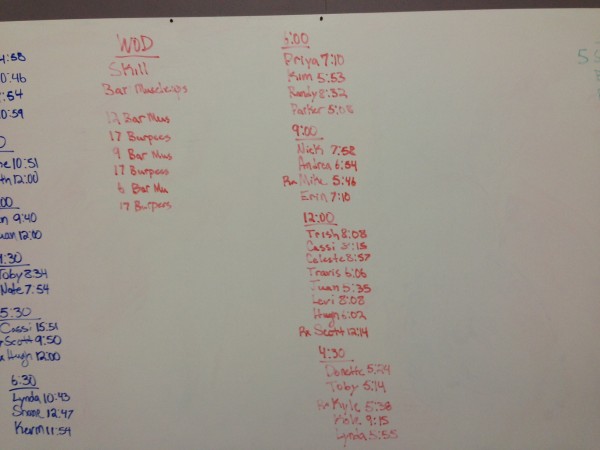 4:38
0:46
:54
0:59
10:51
12:00
9:40
12:00
4:30
Toby 8:34
Nate 7:54
5:30
Cassi 15:51
Scott 9:50
Rx Hugh 12:00
6:30
Lynda 10:43
Shane 12:47
Kevin 11:54
WOD
Skill
Bar Muscleups
12 Bar Mus
17 Burpees
9 Bar Mus
17 Burpees
6 Bar Mu
17 Burpees
6:00
Priya 7:10
Kim 5:53
Randy 8:32
Parker 5:08
9:00
Nick 7:58
Andrea 6:54
Rx Mike 5:46
Erin 7:10
12:00
Trish 8:08
Cassi
Celeste 8:57
Travis 6:06
Juan 5:35
Levi 8:08
Hugh 6:02
Rx Scott 12:14
4:30
Donette 5:24
Toby 5:14
Rx Kyle 5:38
Kole 9:15
Lynda 5:55
5